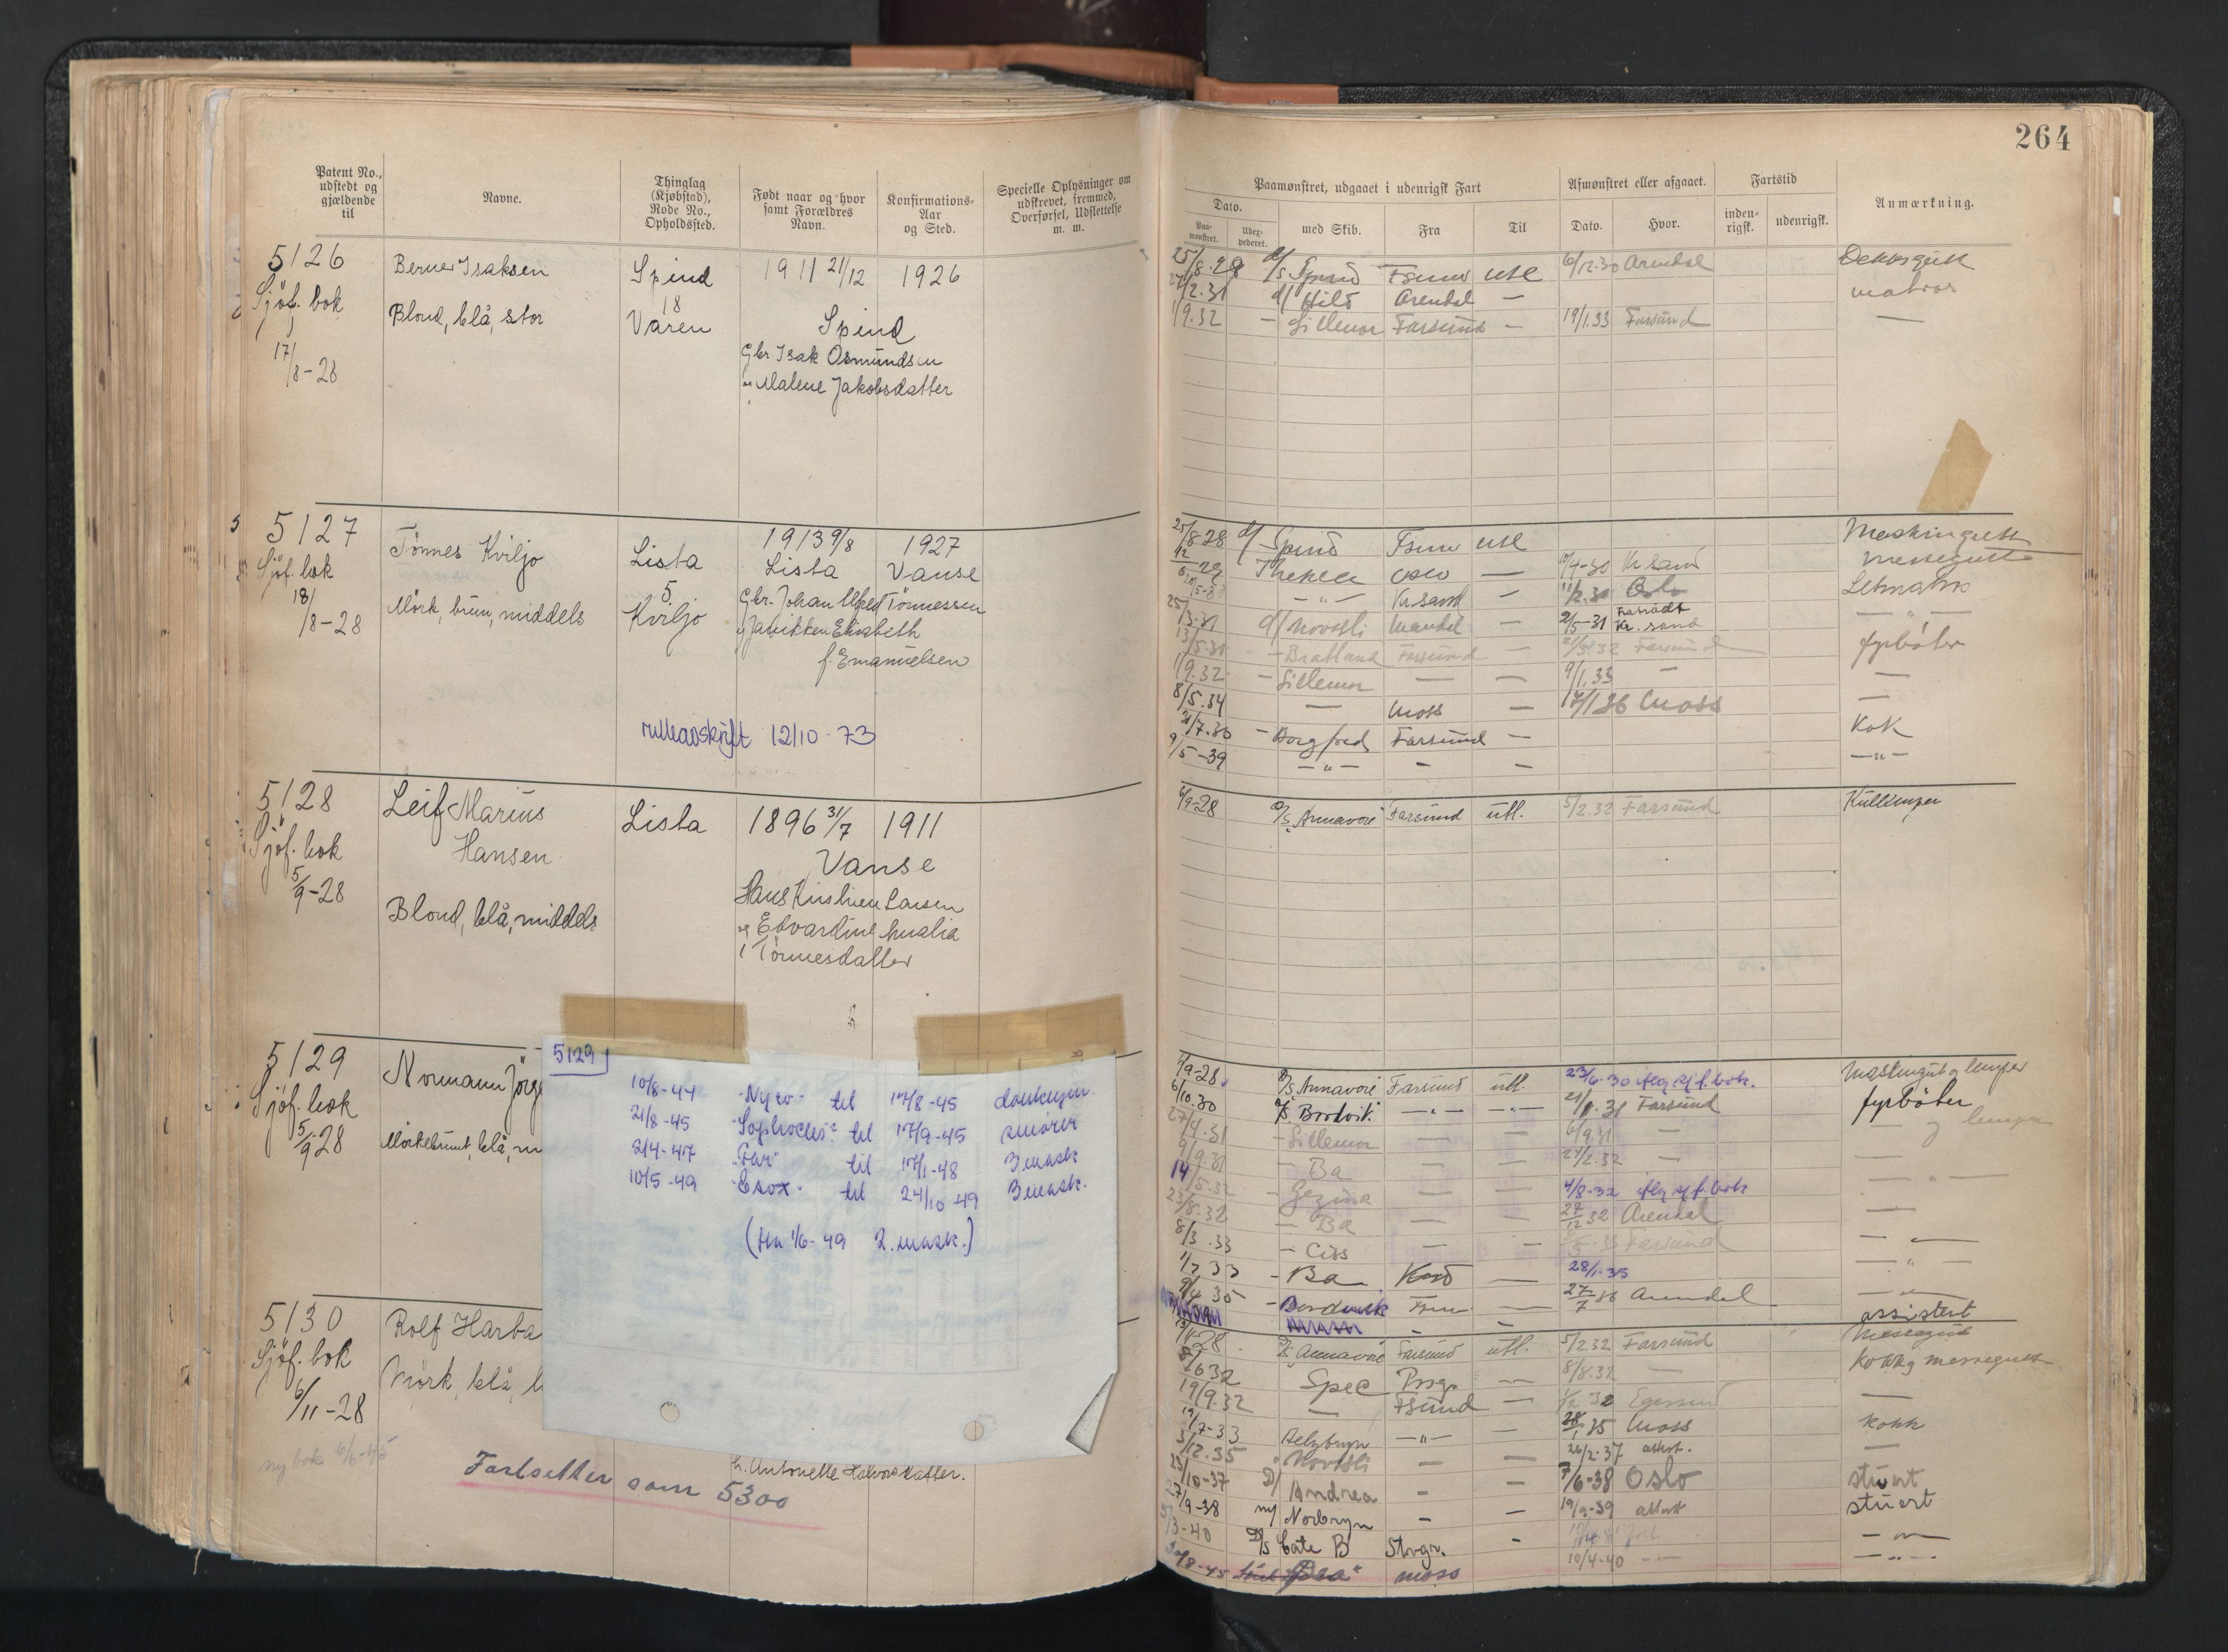 264
Patent No., udstedt og gjældende til
Navne.
Thinglag (Kjøbstad), Rode No., Opholdssted.
Født naar og hvor samt Forældres Navn.
Konfirmations-Aar og Sted.
Specielle Oplysninger om udskrevet, fremmed, Overførsel, Udslettelse m. m.
Paamønstret, udgaaet i udenrigsk Fart
Afmønstret eller afgaaet.
Fartstid
Anmærkning.
Dato.
Paa-mønstret.
Udex-pederet.
med Skib.
Fra
Til
Dato.
Hvor.
inden-rigsk.
udenrigsk.
5126
Sjöf. bok
17/8-28
Berner Isaksen
Blond, blå, stor
Spind
18
Varen
1911 21/12 1926
Spind
Gbr. Isak Osmundsen
og Malene Jakobsdatter
25/8.28 d/s Spind Fsund utl 6/12.30 Arendal Dekksgutt
27/2.31 d/ Hild Arendal — matros
1/9.32 — Sillemor Farsund — 19/1.33 Farsund —
5127
Sjöf. bok
18/8-28
Tönnes Kviljo
Mörk, brun, middels
Lista
5
Kviljo
1913 9/8 1927
Lista Vanse
Gbr. Johan Alfred Tönnessen
og Janikken Elisabeth
f. Emanuelsen
rulleavskrift 12/10-73
25/8-28 d/ Spind Fsund utl Maskingutt
Thekla Oslo — /4-30 Kr.sand messegutt
— " — Kr.sand — 11/2.31 Oslo Letmatr.
25/3.31 d/ Novasli Mandal 2/5-31 Kr. sand — " —
13/5.31 — Bratland Farsund — 21/3.32 Farsund fyrböter
1/9.32 — Sillemor — — 9/1.33 — —
8/5.34 — Moss — 17/1 36 Moss —
21/7.36 — Borgfred Farsund — Kok
9/5-39 — " — - — — " —
5128
Sjöf. bok
5/9-28
Leif Marius
Hansen
Blond, blå, middels
Lista
1896 31/7 1911
Vanse
Hans Kristian Larsen
og Edvardine Amalia
Tönnesdatter
4/9-28 D/s Annavore Farsund utl. 5/2.32 Farsund Kullemper
5129
Sjöf. bok
5/9-28
Normann Jörg
Mörkebrunt, blå, m
5129
10/8-44 "Nyco" til 17/8-45 donkeym.
21/8-45 "Sophocles" til 17/9-45 smörer
2/4-47 "Far" til 17/1-48 3 mask
10/5-49 "Esox" til 24/10-49 3 mask.
(fra 1/6-49 2. mask.)
4/9-28 D/s Annavore Farsund utl. 23/6-30 iflg sjf. bok. Maskingut og lemper
6/10.30 D/s Bordvik — " — — " — 21/1.31 Farsund fyrböter
27/4.31 — Sillemor — — 6/9 31 — — og lemper
9/9.31 — Ba — — 27/2.32 — —
14/5.32 — Gezina — — 4/8-32 iflg sjf. bok — " —
23/8.32 — Ba — — 27/12 32 Arendal —
8/3.33 — Ciss — — Farsund —
1/7 33 — Ba — 28/1-35 — " —
9/4 35 — Bordvik Fsu — 27/7 36 Arendal —
assistent
5130
Sjöf. bok
6/11-28
ny bok 6/6-45
Rolf Harba
Mörk, blå,
h. Antonette Halvorsdatter.
Fortsetter som 5300
D/s Annavore Farsund utl. 5/2.32 Farsund Messegut
8/6 32 Spec Prsgr — 8/8.32 — Kokk og messegutt
19/9.32 — Fsund — Egersund —
19/7-33 Belzbryn — " — — 28/1 35 Moss kokk
5/12.35 Novasli — — 26/2-37 attest. —
23/10-37 D/ Andrea - - 7/6-38 Oslo stuert
27/9-38 m/ Norbryn - - 19/9-39 attest stuert
5/3-40 D/s Cate B Stvgr. - — " —
10/4-40 — — " —
30/8-45 moss